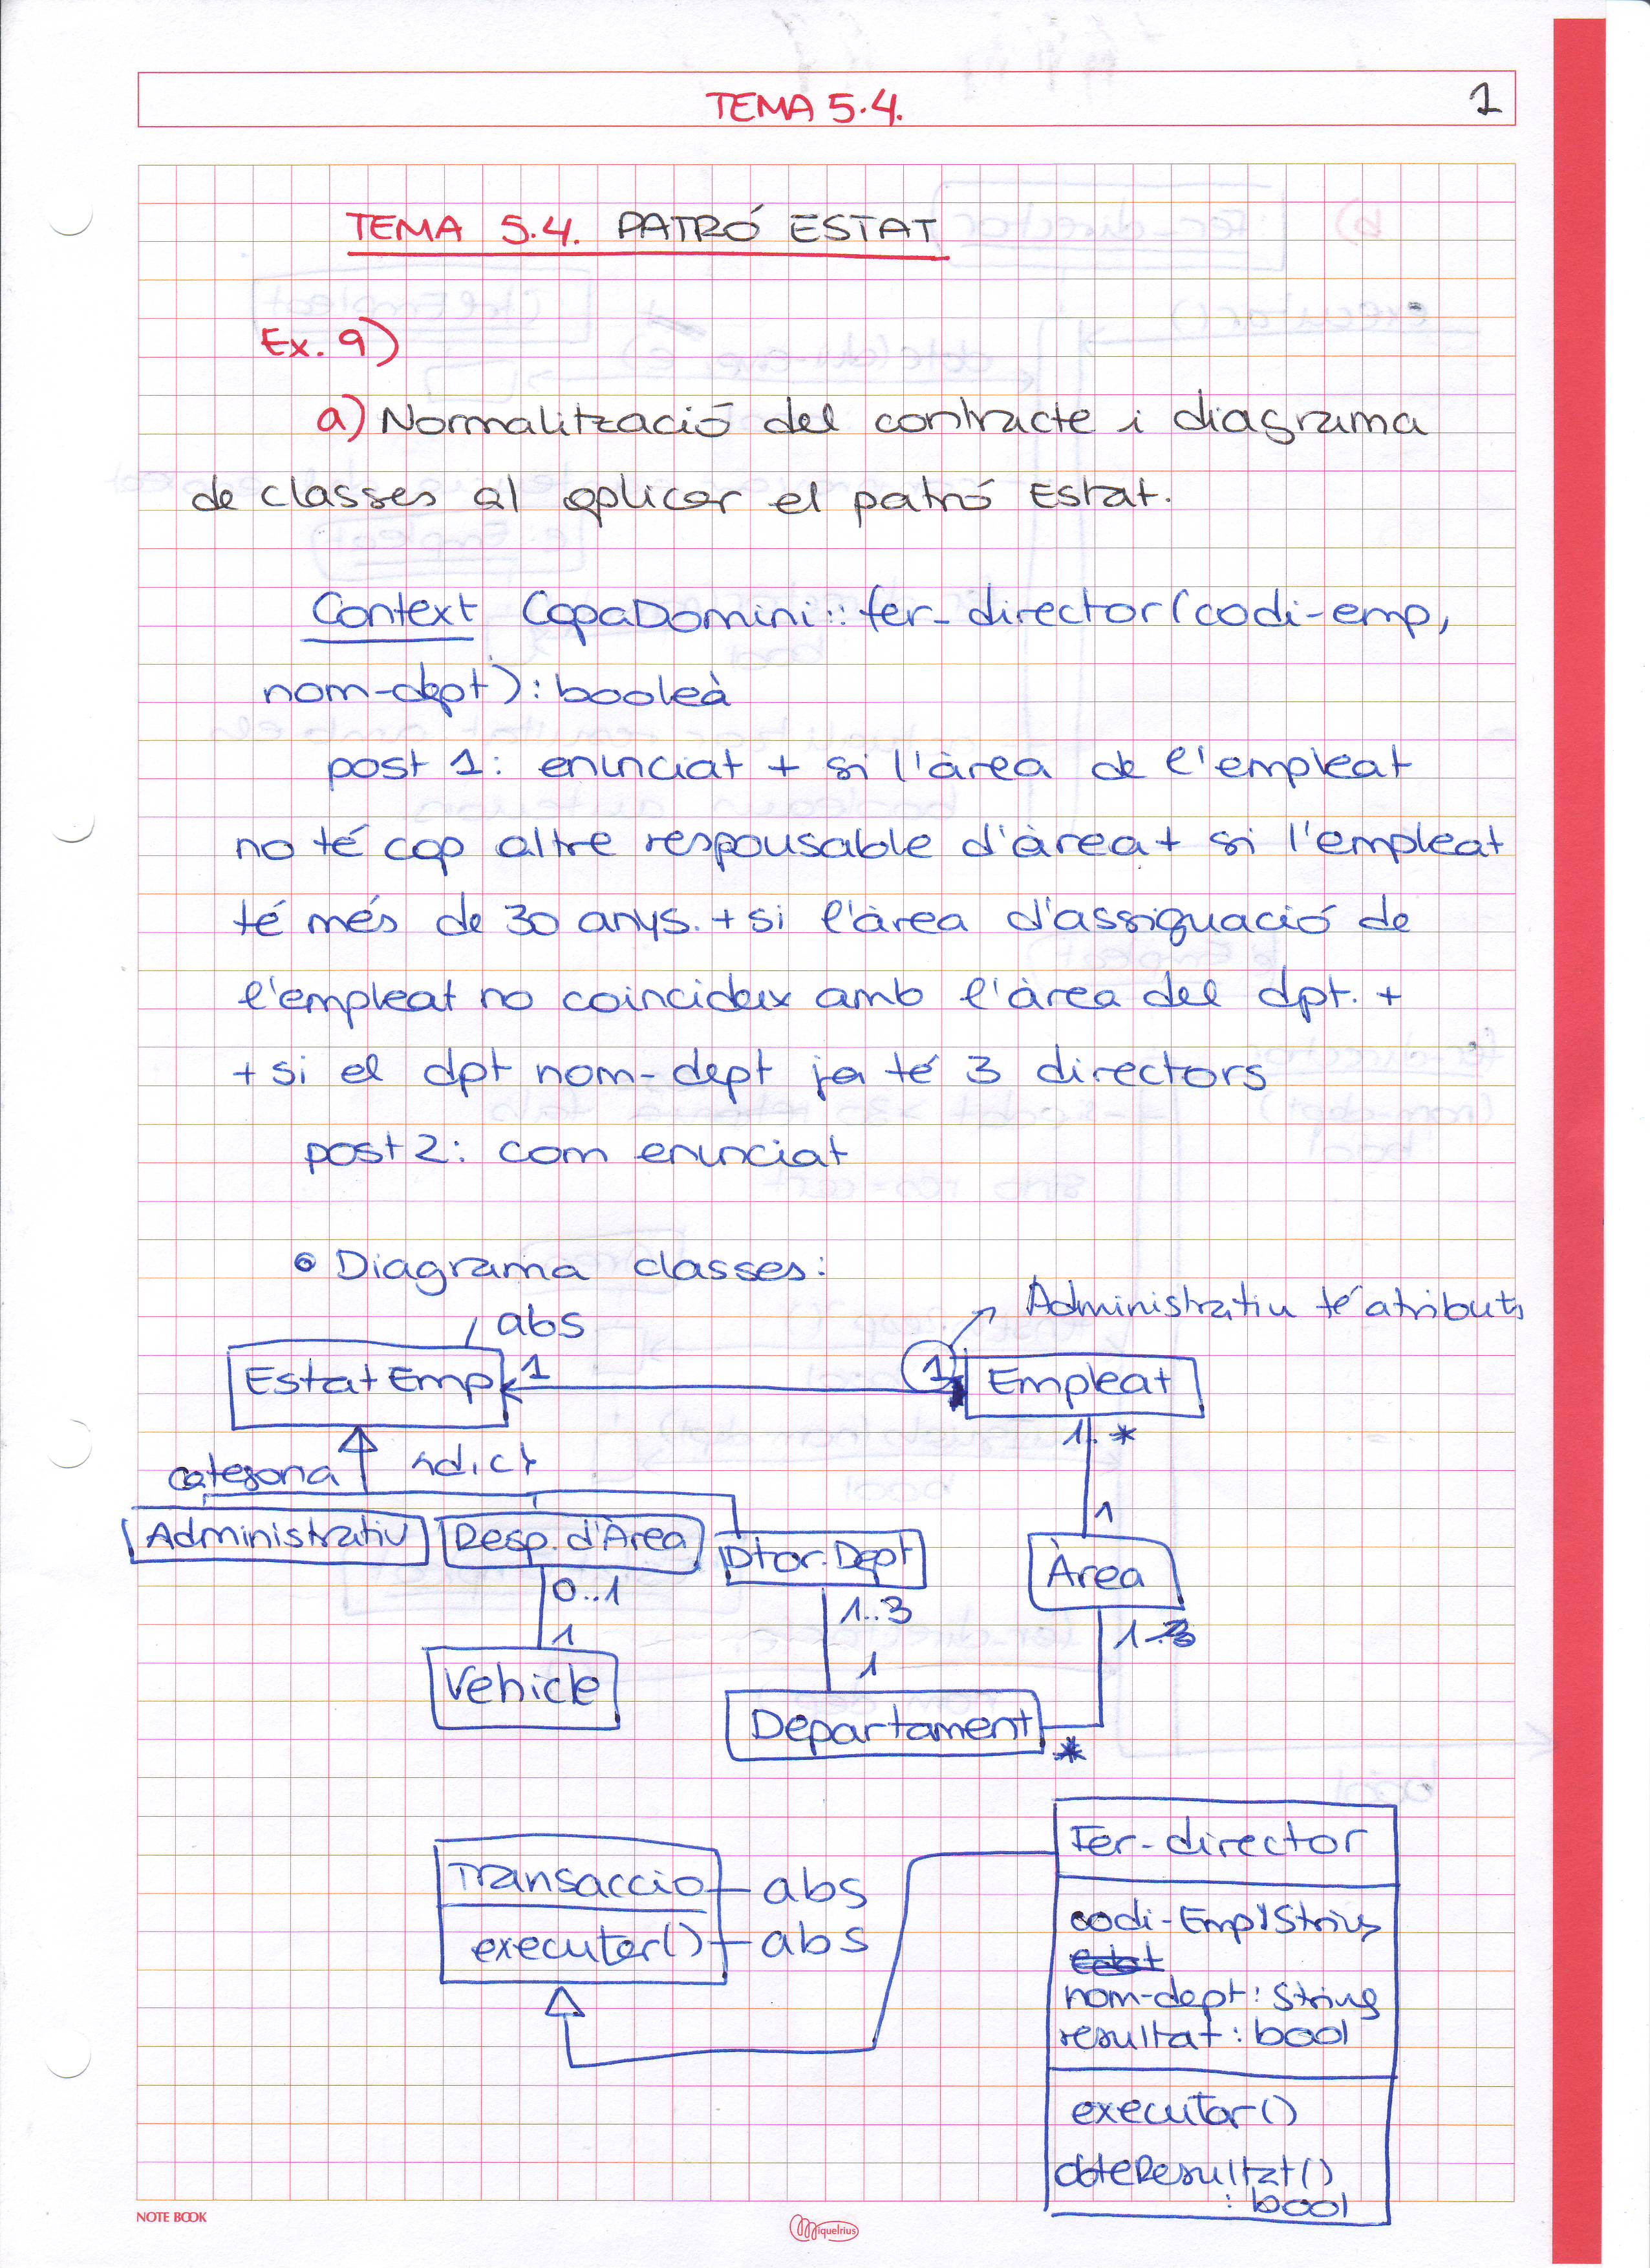 TEMA 5.4.
1
TEMA 5.4. PATRÓ ESTAT
Ex. 9)
a) Normalització del contracte i diagrama
de classes al aplicar el patró Estat.
Context CapaDomini::fer_director(codi-emp,
nom-dept): booleà
post 1: enunciat + si l'àrea de l'empleat
no té cap altre responsable d'àrea + si l'empleat
té més de 30 anys. + si l'àrea d'assignació de
l'empleat no coincideix amb l'àrea del dpt. +
+ si el dpt nom-dept ja té 3 directors
post 2: com enunciat
• Diagrama classes:
abs
Administratiu té atributs
Estat Emp
1
1
Empleat
1..*
categoria
{d,c}
1
Administratiu
Resp. d'Àrea
Dtor. Dept
Àrea
0..1
1..3
1
1
1
Vehicle
Departament
*
Transaccio
abs
executar()
abs
Fer-director
codi-Emp: String
nom-dept: String
resultat: bool
executar()
obteResultat()
: bool
NOTE BOOK
Miquelrius